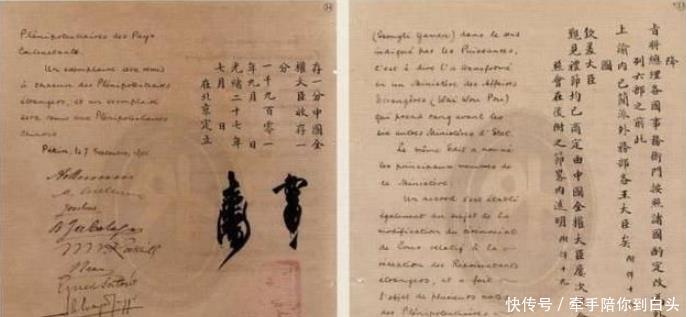 Plénipotentiaires des Pays
Contractants.
Un exemplaire sera remis
à chacun des Plénipotentiaires
étrangers, et un exemplaire
sera remis aux Plénipotentiaires
chinois
Pekin, le 7 Septembre, 1901
存一分中國全
權大臣收存一
分
一千九百零一
年九月 日
光緒二十七年
七月 日
在北京定立
(Tsongli Yamen) dans le sens
indiqué par les Puissances,
c'est à dire l'a transformé
en un Ministère des Affaires
Etrangères (Wai Wou Pou)
qui prend rang avant les
six autres Ministères d'Etat.
Le même Edit a nommé
les principaux membres de
ce Ministère.
Un accord s'est établi
également au sujet de la
modification du cérémonial
de Cour relatif à la ré-
ception des Représentants
étrangers, et a fait
l'objet de plusieurs notes
des Plénipotentiaires
降
旨將總理各國事務衙門按照諸國酌定改
列六部之前此
上諭內已簡派外務部各王大臣矣附件十
國
欽差大臣
覲見禮節均已商定由中國全權大臣屢次
照會在後附之節畧內述明附件十九
快传号/牵手陪你到白头